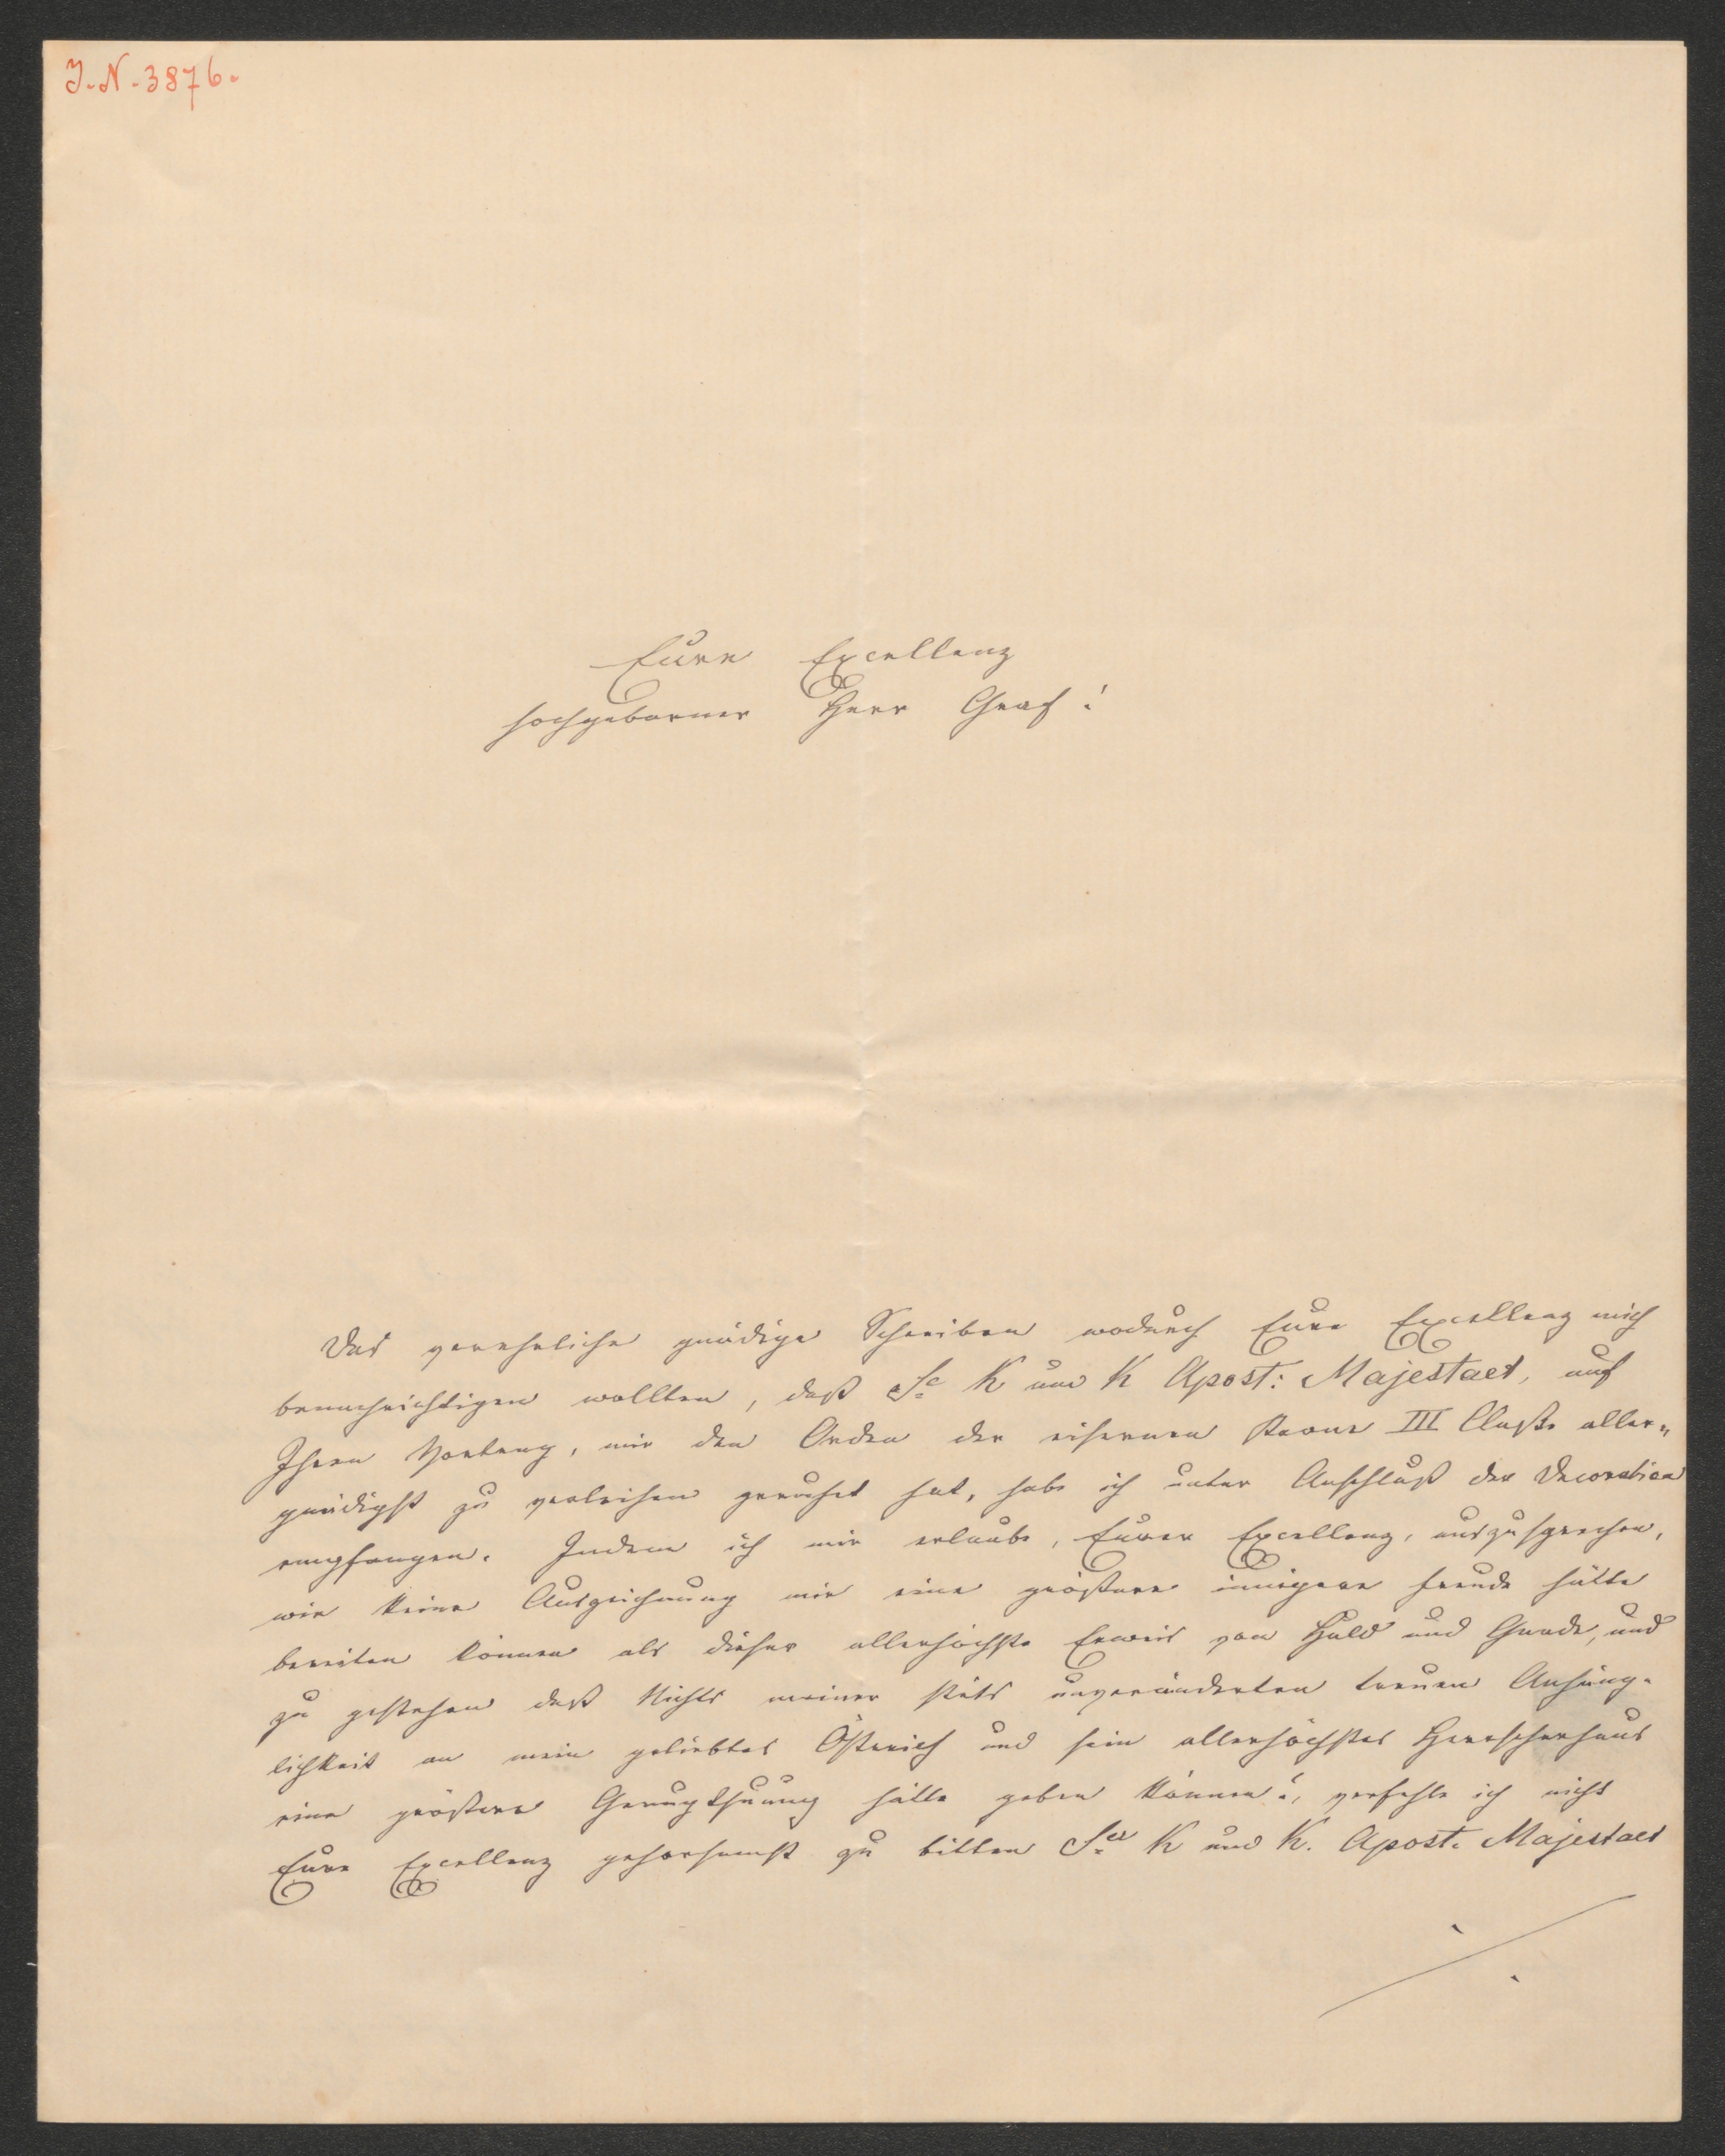 J. N. 3876.
Eure Excellenz
hochgeborner Herr Graf!
Das verehrliche gnädige Schreiben wodurch Eure Excellenz mich
benachrichtigen wollten, daß Se K und K Apost: Majestaet, auf
Ihren Vortrag, mir den Orden der eisernen Krone III Classe aller„
gnädigst zu verleihen geruhet hat, habe ich unter Anschluß der Decoration
empfangen. Indem ich mir erlaube, Eurer Excellenz, auszusprechen,
wie keine Auszeichnung mir eine größere innigere Freude hätte
bereiten können als dieser allerhöchste Erweis von Huld und Gnade, und
zu gestehen daß Nichts meiner stäts unveränderten treuen Anhäng-
lichkeit an mein geliebtes Östreich und sein allerhöchstes Herrscherhaus
eine größere Genugthuung hätte geben können!, verfehle ich nicht
Eure Excellenz gehorsamst zu bitten Ser K und K. Apost. Majestaet